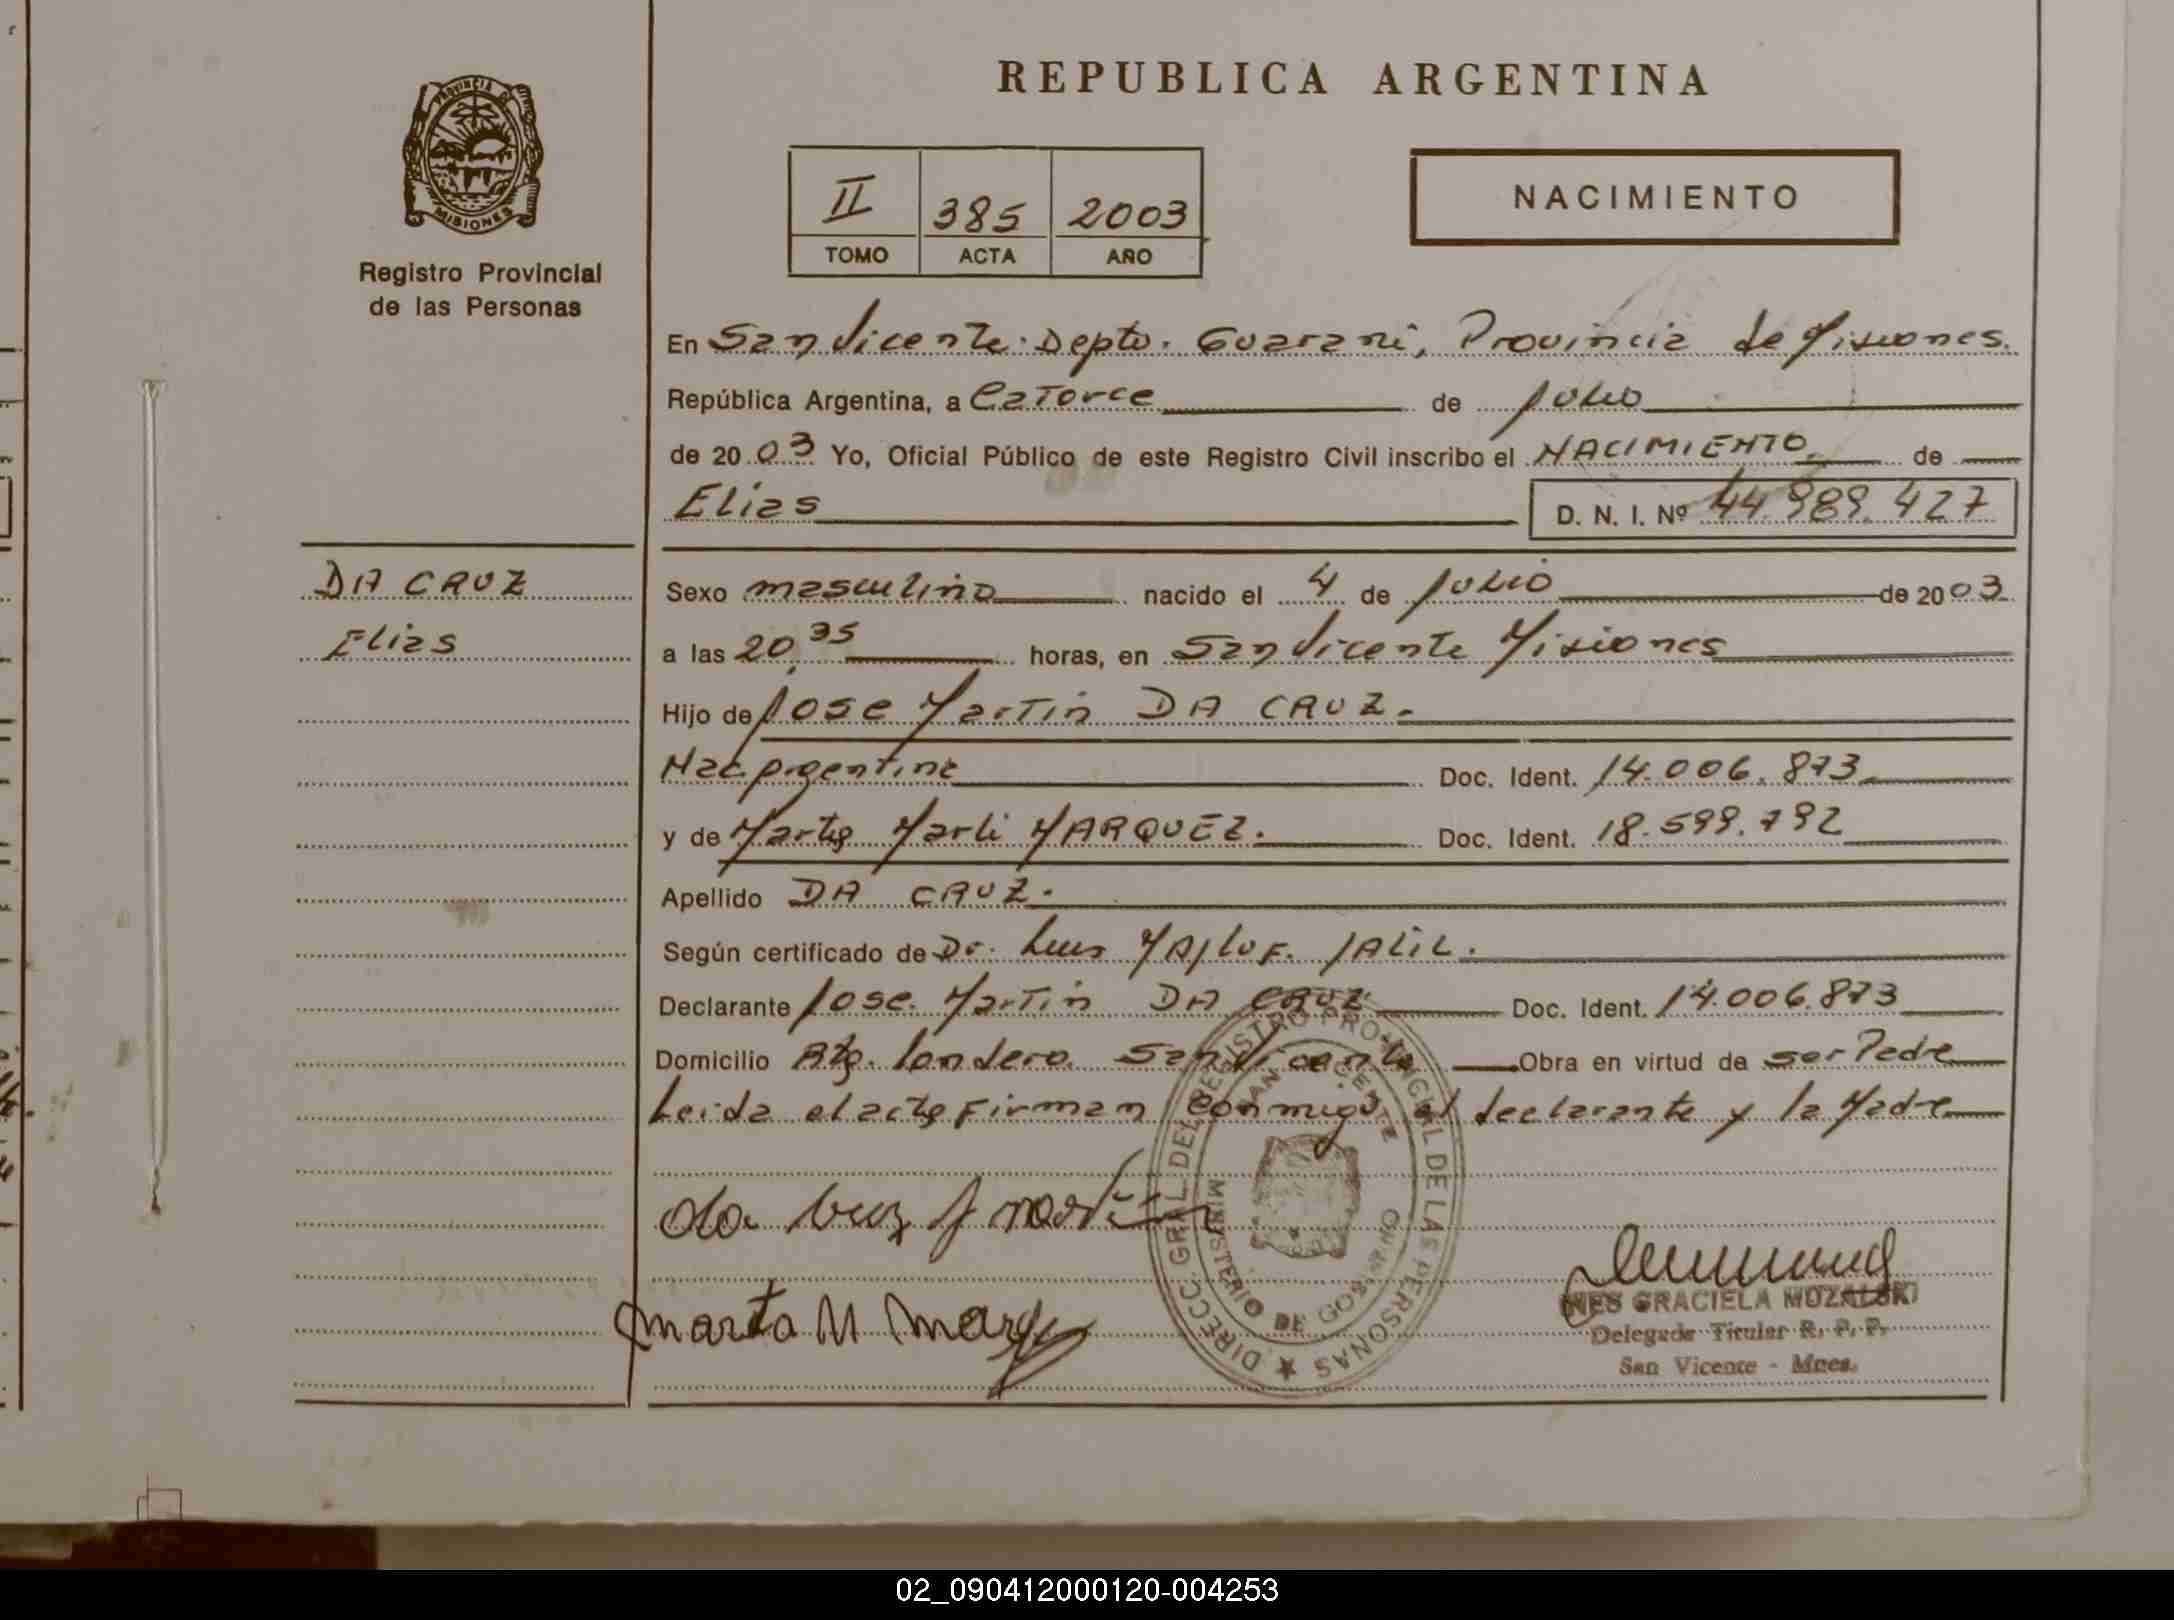 REPUBLICA ARGENTINA
PROVINCIA DE
MISIONES
Registro Provincial
de las Personas
II 385 2003
TOMO ACTA AÑO
NACIMIENTO
En San Vicente. Depto. Guarani, Provincia de Misiones.
República Argentina, a Catorce de julio
de 2003 Yo, Oficial Público de este Registro Civil inscribo el NACIMIENTO. de
Elias D. N. I. Nº 44.989.427
DA CRUZ
Elias
Sexo masculino nacido el 4 de julio de 2003
a las 20,35 horas, en San Vicente Misiones
Hijo de Jose Martin DA CRUZ.
Nac. Argentina Doc. Ident. 14.006.873
y de Marta Marli MARQUEZ. Doc. Ident. 18.599.792
Apellido DA CRUZ.
Según certificado de Dr. Luis JALIL.
Declarante Jose Martin DA CRUZ Doc. Ident. 14.006.873
Domicilio Londero San Vicente Obra en virtud de ser Padre
Leida el acta Firman conmigo el declarante y la Madre
DIRECC. GRAL. DEL REGISTRO PROVINCIAL DE LAS PERSONAS
SAN VICENTE
MINISTERIO DE GOBIERNO
da Cruz J Martin
Marta M Marq
INES GRACIELA MUZALSKI
Delegada Titular R. P. P.
San Vicente - Mnes.
02_090412000120-004253